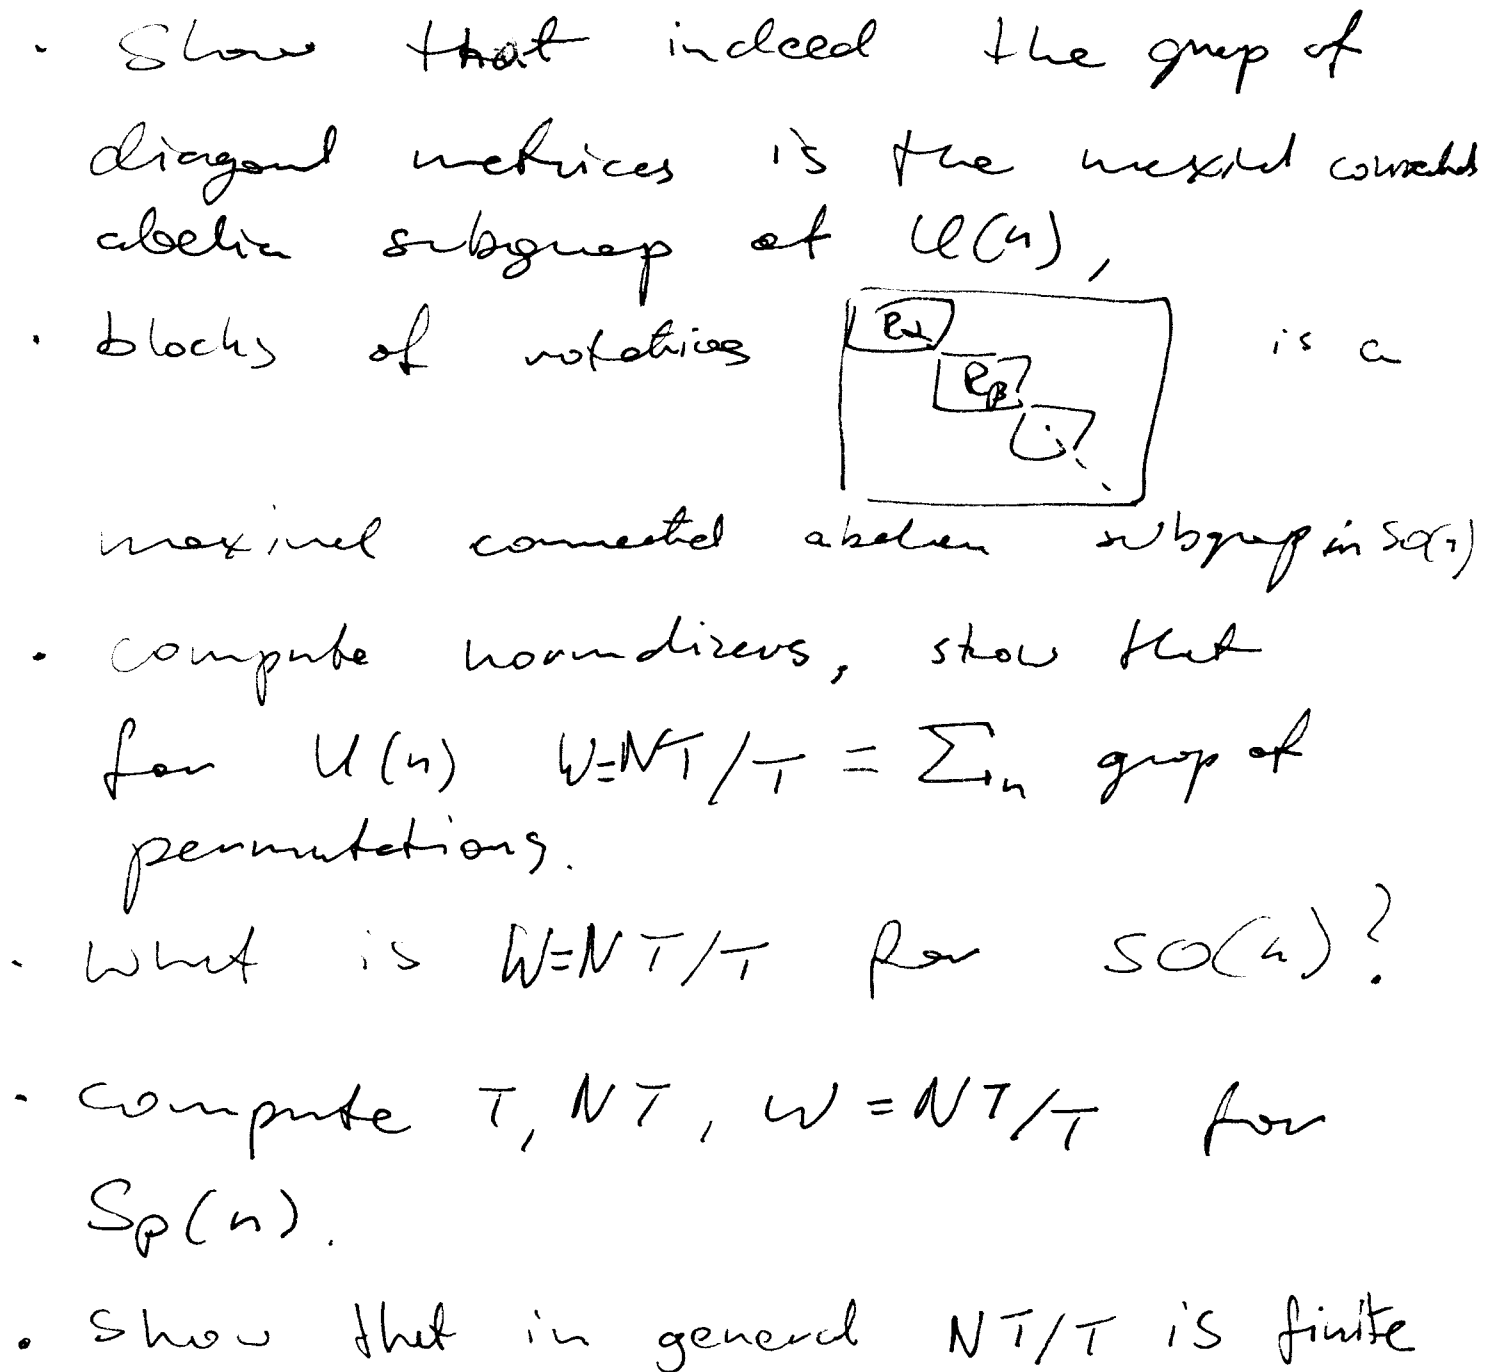 · Show that indeed the group of
diagonal matrices is the maximal connected
abelian subgroup of U(n),
· blocks of rotations Rα Rβ is a
maximal connected abelian subgroup in SO(n)
· compute normalizers, show that
for U(n) W=NT/T = Σn group of
permutations.
· What is W=NT/T for SO(n)?
· compute T, NT, W = NT/T for
Sp(n).
· show that in general NT/T is finite